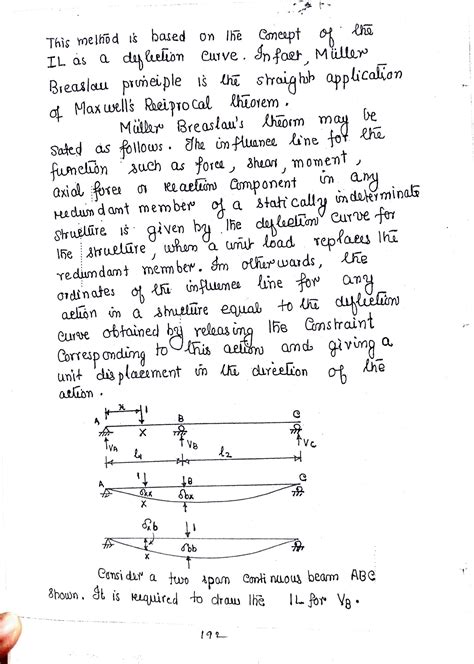 This method is based on the Concept of the
IL as a deflection Curve. Infact, Müller
Breaslau principle is the straight application
of Maxwell's Reciprocal theorem.
Müller Breaslau's theorm may be
Sated as follows. The influence line for the
function such as force, shear, moment,
axial force or reaction Component in any
redundant member of a statically indeterminate
structure is given by the deflection Curve for
the structure, when a unit load replaces the
redundant member. In otherwards, the
ordinates of the influence line for any
action in a structure equal to the deflection
Curve obtained by releasing the Constraint
Corresponding to this action and giving a
unit displacement in the direction of the
action.
A x 1 B C
X
VA VB VC
l1 l2
A 1 B C
δxx δbx
X
δxb 1
δbb
X
Consider a two span Continuous beam ABC
shown. It is required to draw the IL for VB.
192